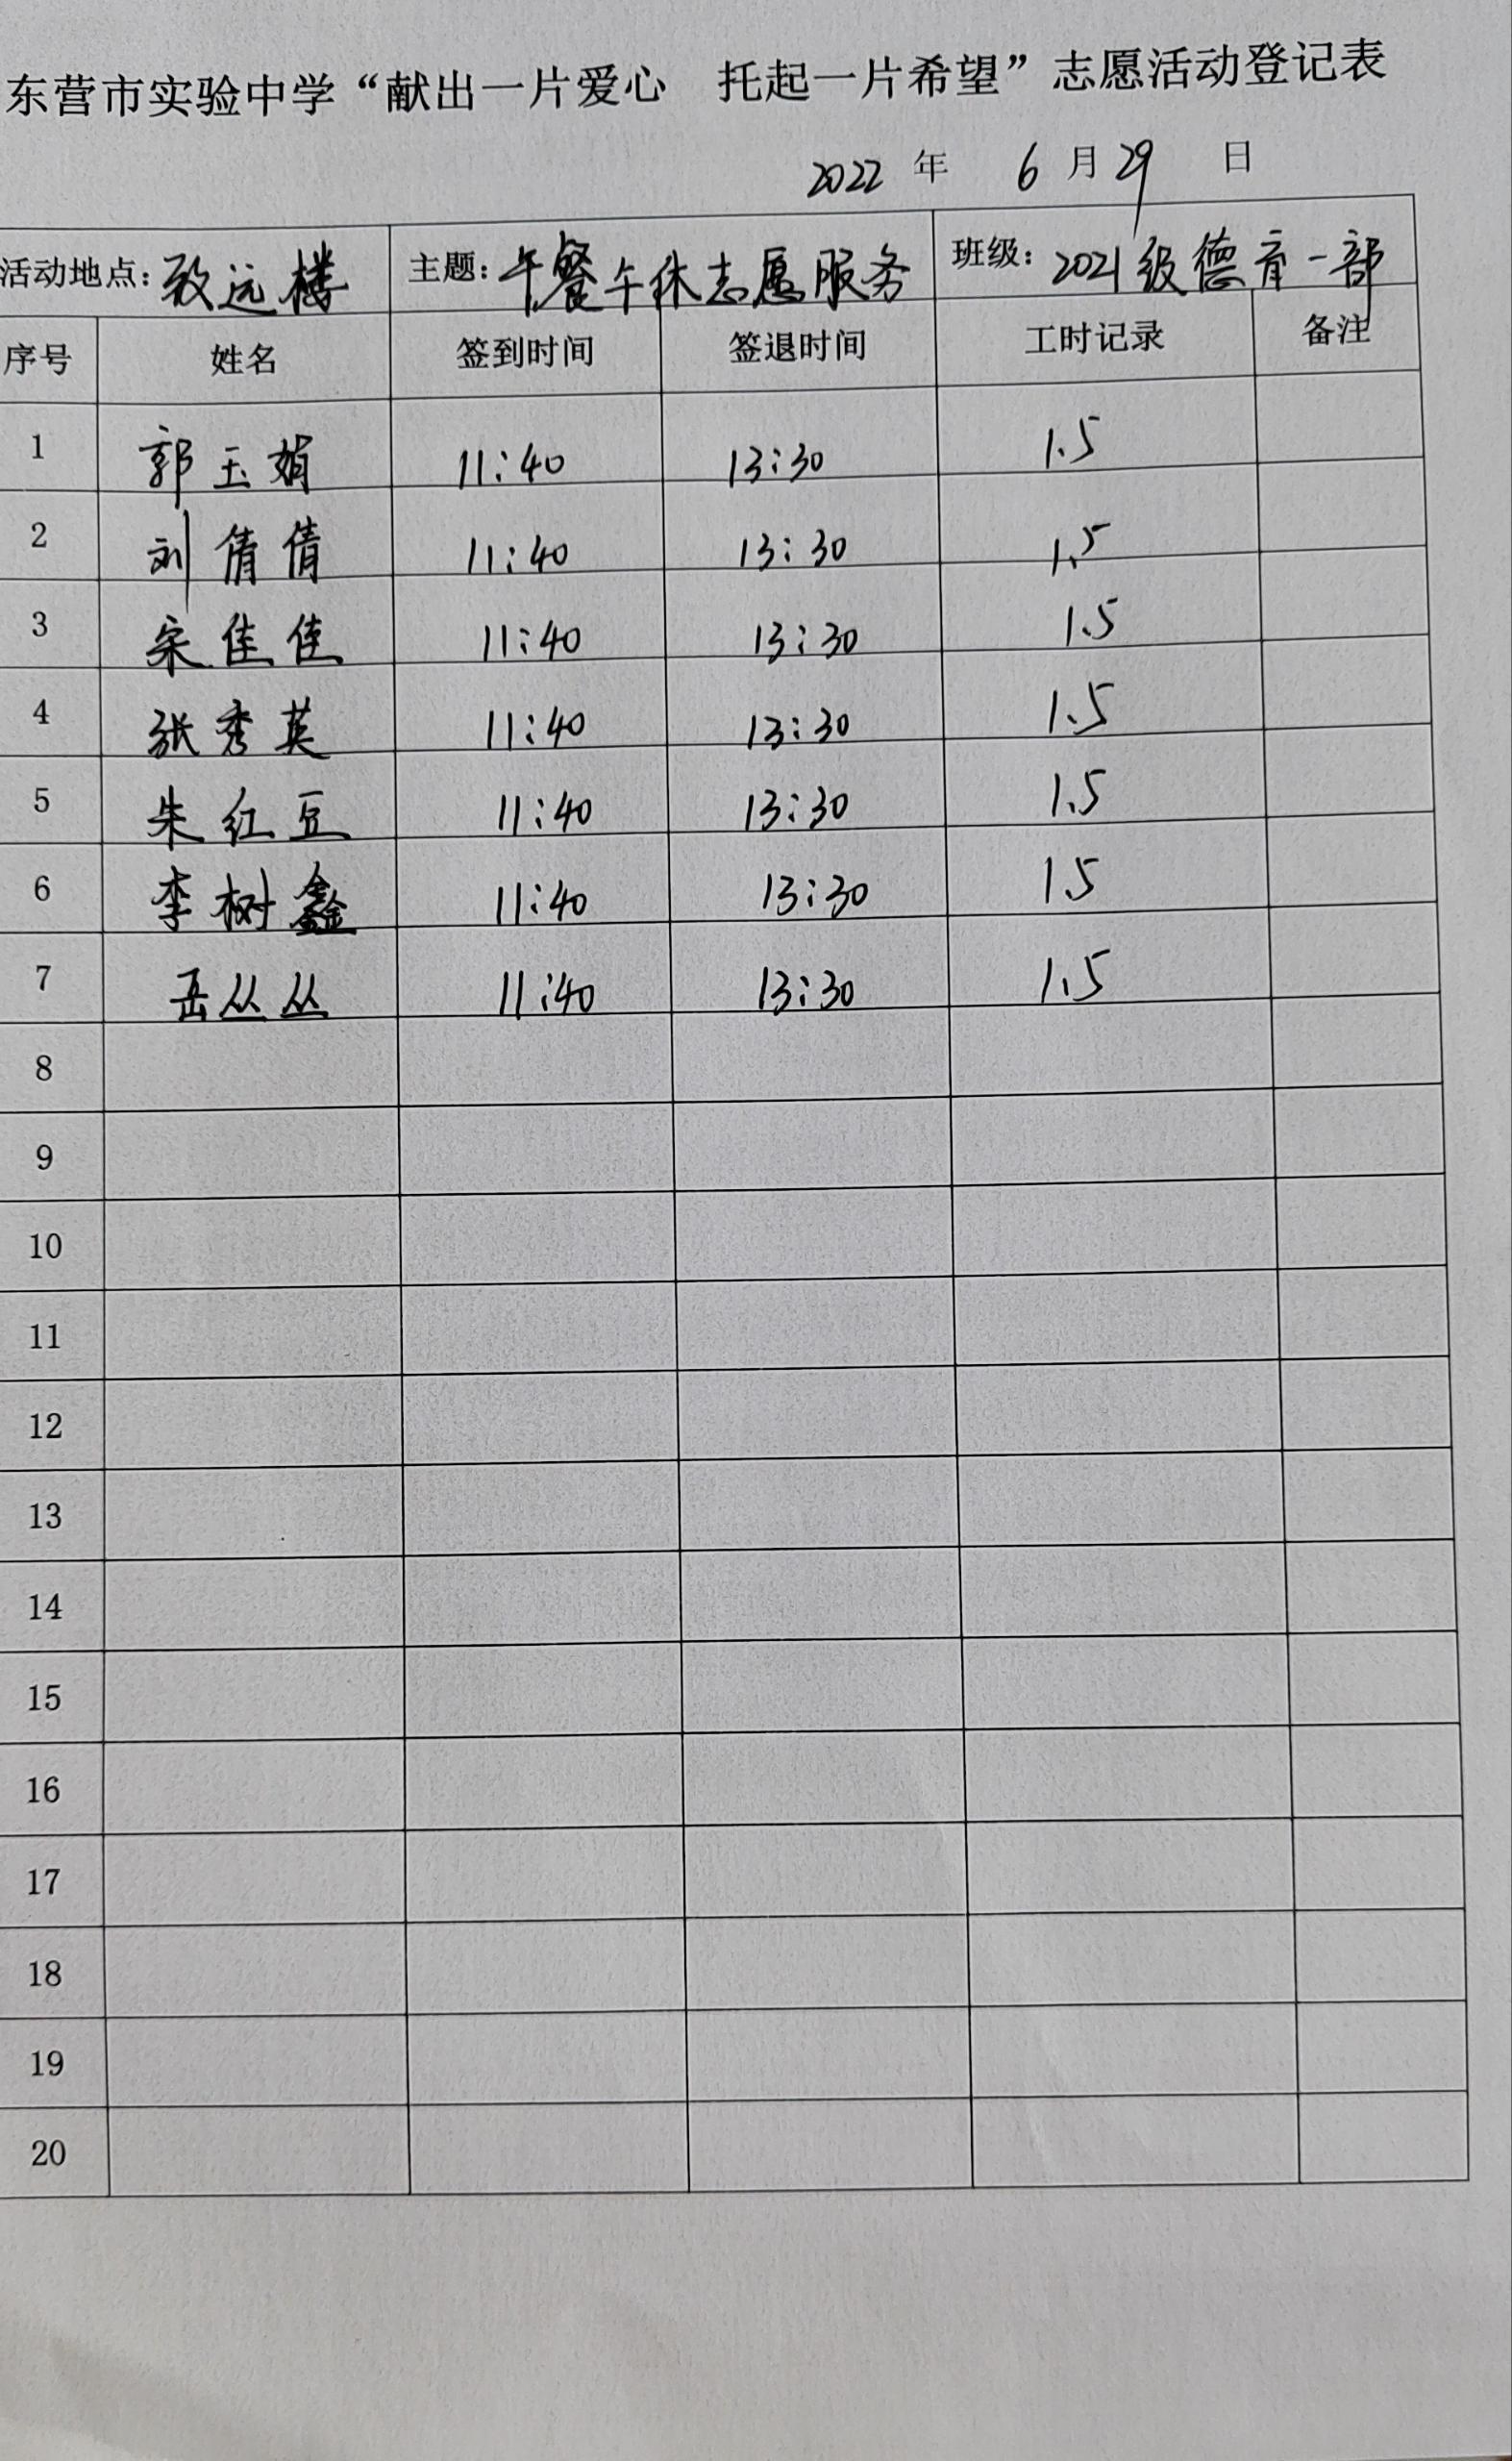 东营市实验中学“献出一片爱心 托起一片希望”志愿活动登记表
2022 年 6 月 29 日
活动地点：致远楼 主题：午餐午休志愿服务 班级：2021级德育一部
序号 姓名 签到时间 签退时间 工时记录 备注
1 郭玉娟 11:40 13:30 1.5
2 刘倩倩 11:40 13:30 1.5
3 宋佳佳 11:40 13:30 1.5
4 张秀英 11:40 13:30 1.5
5 朱红豆 11:40 13:30 1.5
6 李树鑫 11:40 13:30 1.5
7 岳丛丛 11:40 13:30 1.5
8
9
10
11
12
13
14
15
16
17
18
19
20